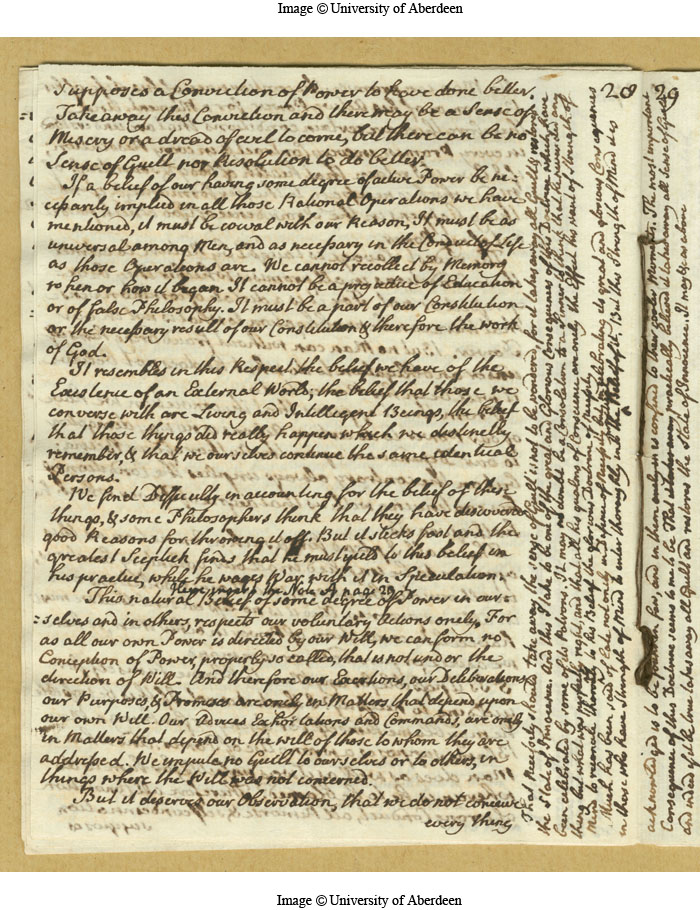 Image © University of Aberdeen
28 29
Supposes a Conviction of Power to have done better.
Take away this Conviction and there may be a Sense of
Misery or a dread of evil to come, but there can be no
Sense of Guilt nor Resolution to do better.
If a belief of our having some degree of active Power be ne=
cessarily implied in all those Rational Operations we have
mentioned, it must be coeval with our Reason, It must be as
universal among Men, and as necessary in the Conduct of Life
as those Operations are. We cannot recollect by Memory
when or how it began. It cannot be a prejudice of Education
or of false Philosophy. It must be a part of our Constitution
or the necessary result of our Constitution & therefore the work
of God.
It resembles in this Respect, the belief we have of the
Existence of an External World; the belief that those we
converse with are Living and Intelligent Beings, the belief
that those things did really happen which we distinctly
remember, & that we ourselves continue the same identical
Persons.
We find Difficulty in accounting for the belief of these
things, & some Philosophers think that they have discovered
good Reasons for throwing it off. But it sticks fast and the
greatest Sceptick finds that he must yield to this belief in
his practice, while he wages War with it in Speculation.
Here insert the Note A page 29
This natural Belief of some degree of Power in our=
=selves and in others, respects our voluntary Actions onely. For
as all our own Power is directed by our Will, we can form no
Conception of Power, properly so called, that is not under the
direction of Will. And therefore our Exertions, our Deliberations
our Purposes, & Promises are onely in Matters that depend upon
our own Will. Our Advices Exhortations and Commands, are onely
in Matters that depend on the will of those to whom they are
addressed. We impute no Guilt to ourselves or to others, in
things where the Will was not concerned.
But it deserves our Observation, that we do not conceive
every thing
That Necessity should take away the sense of Guilt is not to be wondered, for it takes away all Guilt & restores
the State of Innocence. And this I take to be one of the great and Glorious Consequences of this Doctrine which have
been celebrated by some of its Patrons. It may no doubt be a Consolation to a Sinner to think that he never did any
thing but what was perfectly right, and that all his grumblings of Conscience are onely the Effect of his want of Strength of
Mind to reconcile thoroughly to his Belief the glorious Doctrine of Necessity
Much has been said of late not only in defence of Necessity, but in celebrating its great and glorious Consequences
in those who have Strength of Mind to enter thoroughly into the Thought. But this Strength of Mind it is
acknowledged is to be found in few, and in them onely or is confined to their cooler Moments. The most important
Consequence of this Doctrine seems to me to be, that practically believed it takes away all sense of Guilt
and indeed if it be true takes away all Guilt and restores the State of Innocence. It may &c as above
Image © University of Aberdeen